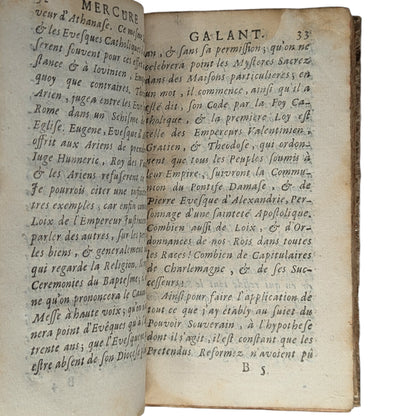 MERCURE
veur d'Athanase. Ce mesme
& les Evesques Catholiques
serent souvent pour ces
stance & à Iovinien,
quoy que contraires,
Arien, jugea entre les Eves
Rome dans un Schisme
Eglise. Eugene, Evesque
offrit aux Ariens de prendre
Iuge Hunneric, Roy des
& les Ariens refuserent
Ie pourrois citer une infi
tres exemples, car enfin
Loix de l'Empereur Iustin
parler des autres, sur les
biens, & generalement
qui regarde la Religion,
Ceremonies du Baptesme,
ne qu'on prononcera le Ca
Messe à haute voix; qu'
nera point d'Evêques qu'à
trente ans; que l'Evesque
estre absent de son Diocese
GALANT. 33
an, & sans sa permission; qu'on ne
celebrera point les Mysteres Sacrez
dans des Maisons particulieres; en
un mot, il commence, ainsi qu'il a
esté dit, son Code par la Foy Ca-
tholique, & la premiere Loy est
celle des Empereurs Valentinien,
Gratien, & Theodose, qui ordon-
nent que tous les Peuples soumis à
leur Empire, suivront la Commu-
nion du Pontife Damase, & de
Pierre Evesque d'Alexandrie, Per-
sonnage d'une sainteté Apostolique.
Combien aussi de Loix, & d'Or-
donnances de nos Rois dans toutes
les Races! Combien de Capitulaires
de Charlemagne, & de ses Suc-
cesseurs!
Ainsi pour faire l'application de
tout ce que j'ay étably au sujet du
Pouvoir Souverain, à l'hypothese
dont il s'agit, il est constant que les
Pretendus Reformez n'avoient pû
B 5